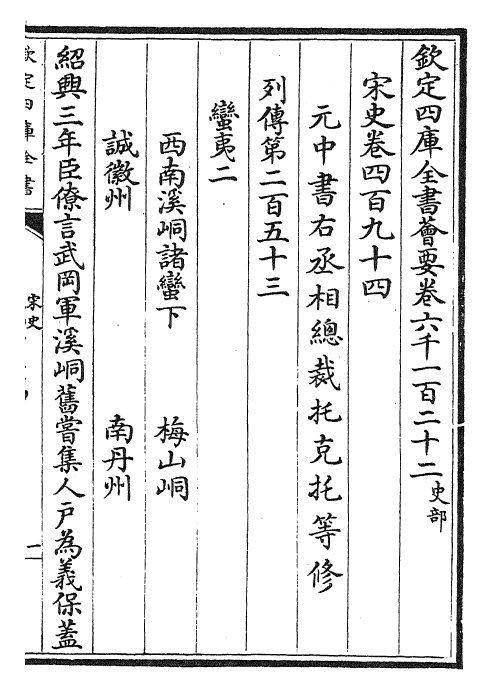 欽定四庫全書薈要卷六千一百二十二史部
宋史卷四百九十四
元中書右丞相總裁托克托等修
列傳第二百五十三
蠻夷二
西南溪峒諸蠻下 梅山峒
誠徽州 南丹州
紹興三年臣僚言武岡軍溪峒舊嘗集人戶為義保蓋
欽定四庫全書
宋史